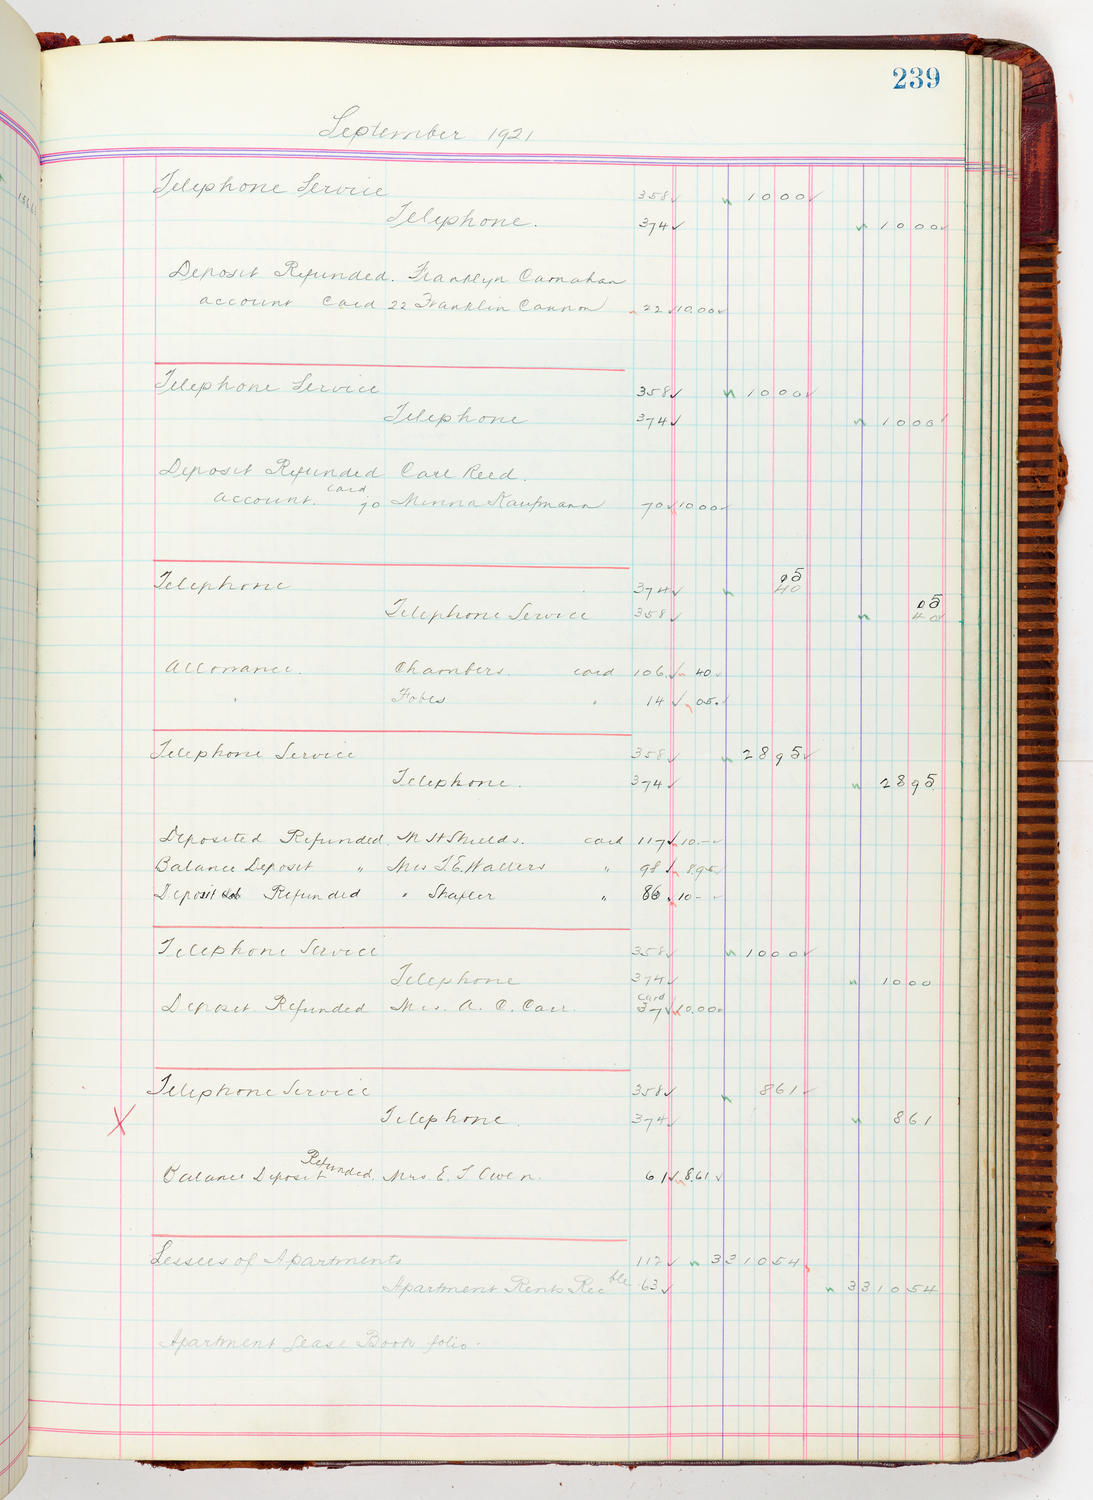 239
September 1921
Telephone Service 358 1000
Telephone. 374 1000
Deposit Refunded. Franklyn Carnahan
account Card 22 Franklin Cannon 22 10.00
Telephone Service 358 1000
Telephone 374 1000
Deposit Refunded Carl Reed.
account. card 70 Minna Kaufmann 70 1000
Telephone 374 05 40
Telephone Service 358 05 40
Allowance. Chambers. card 106 40
" Fobes " 14 05.
Telephone Service 358 2895
Telephone. 374 2895
Deposited Refunded. M H Shields. card 117 10.-
Balance Deposit " Mrs T. E. Walters " 98 8.95
Deposit Refunded " Shafer " 86 10-
Telephone Service 358 1000
Telephone 374 1000
Deposit Refunded Mrs. A. C. Carr. Card 37 10.00
Telephone Service 358 861
X Telephone. 374 861
Balance Deposit Refunded. Mrs E. T Owen. 61 8.61
Lessees of Apartments 112 331054
Apartment Rents Rec ble. 63 331054
Apartment Lease Book folio.